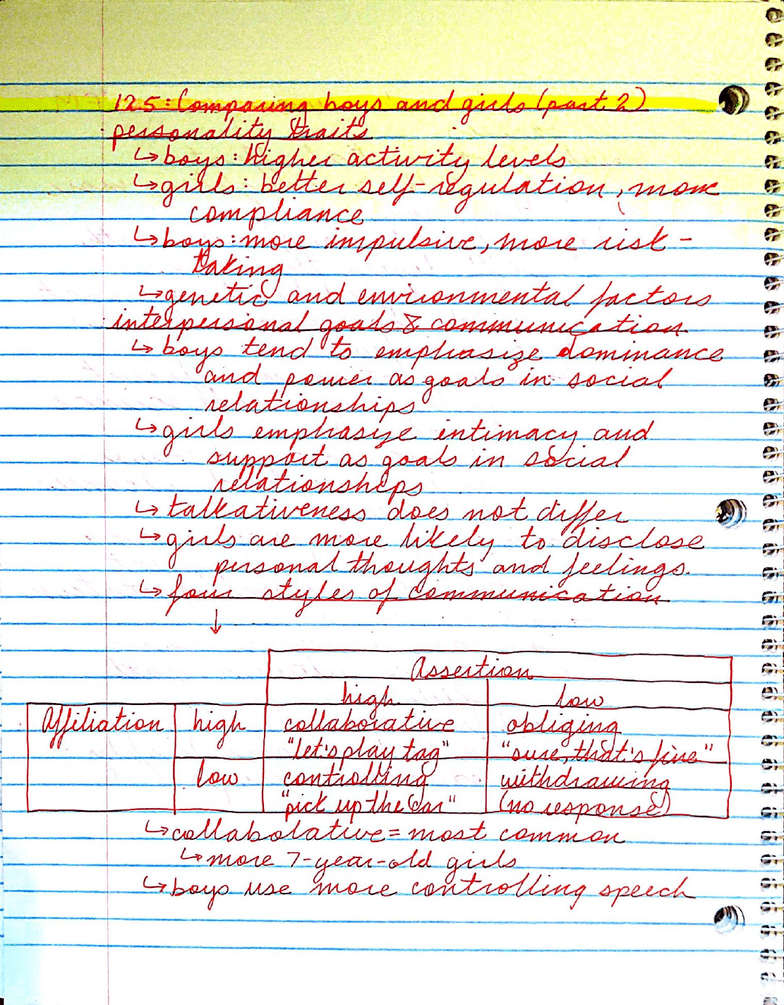 12.5: Comparing boys and girls (part 2)
personality traits
↳ boys: higher activity levels
↳ girls: better self-regulation, more
compliance
↳ boys: more impulsive, more risk-
taking
↳ genetic and environmental factors
interpersonal goals & communication
↳ boys tend to emphasize dominance
and power as goals in social
relationships
↳ girls emphasize intimacy and
support as goals in social
relationships
↳ talkativeness does not differ
↳ girls are more likely to disclose
personal thoughts and feelings.
↳ four styles of communication
↓
Assertion
high low
Affiliation high collaborative obliging
"let's play tag" "sure, that's fine"
low controlling withdrawing
"pick up the car" (no response)
↳ collabolative = most common
↳ more 7-year-old girls
↳ boys use more controlling speech